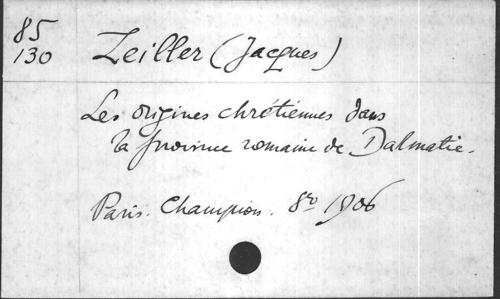 85
130
Zeiller (Jacques)
Les origines chrétiennes dans
la province romaine de Dalmatie.
Paris. Champion. 8vo 1906